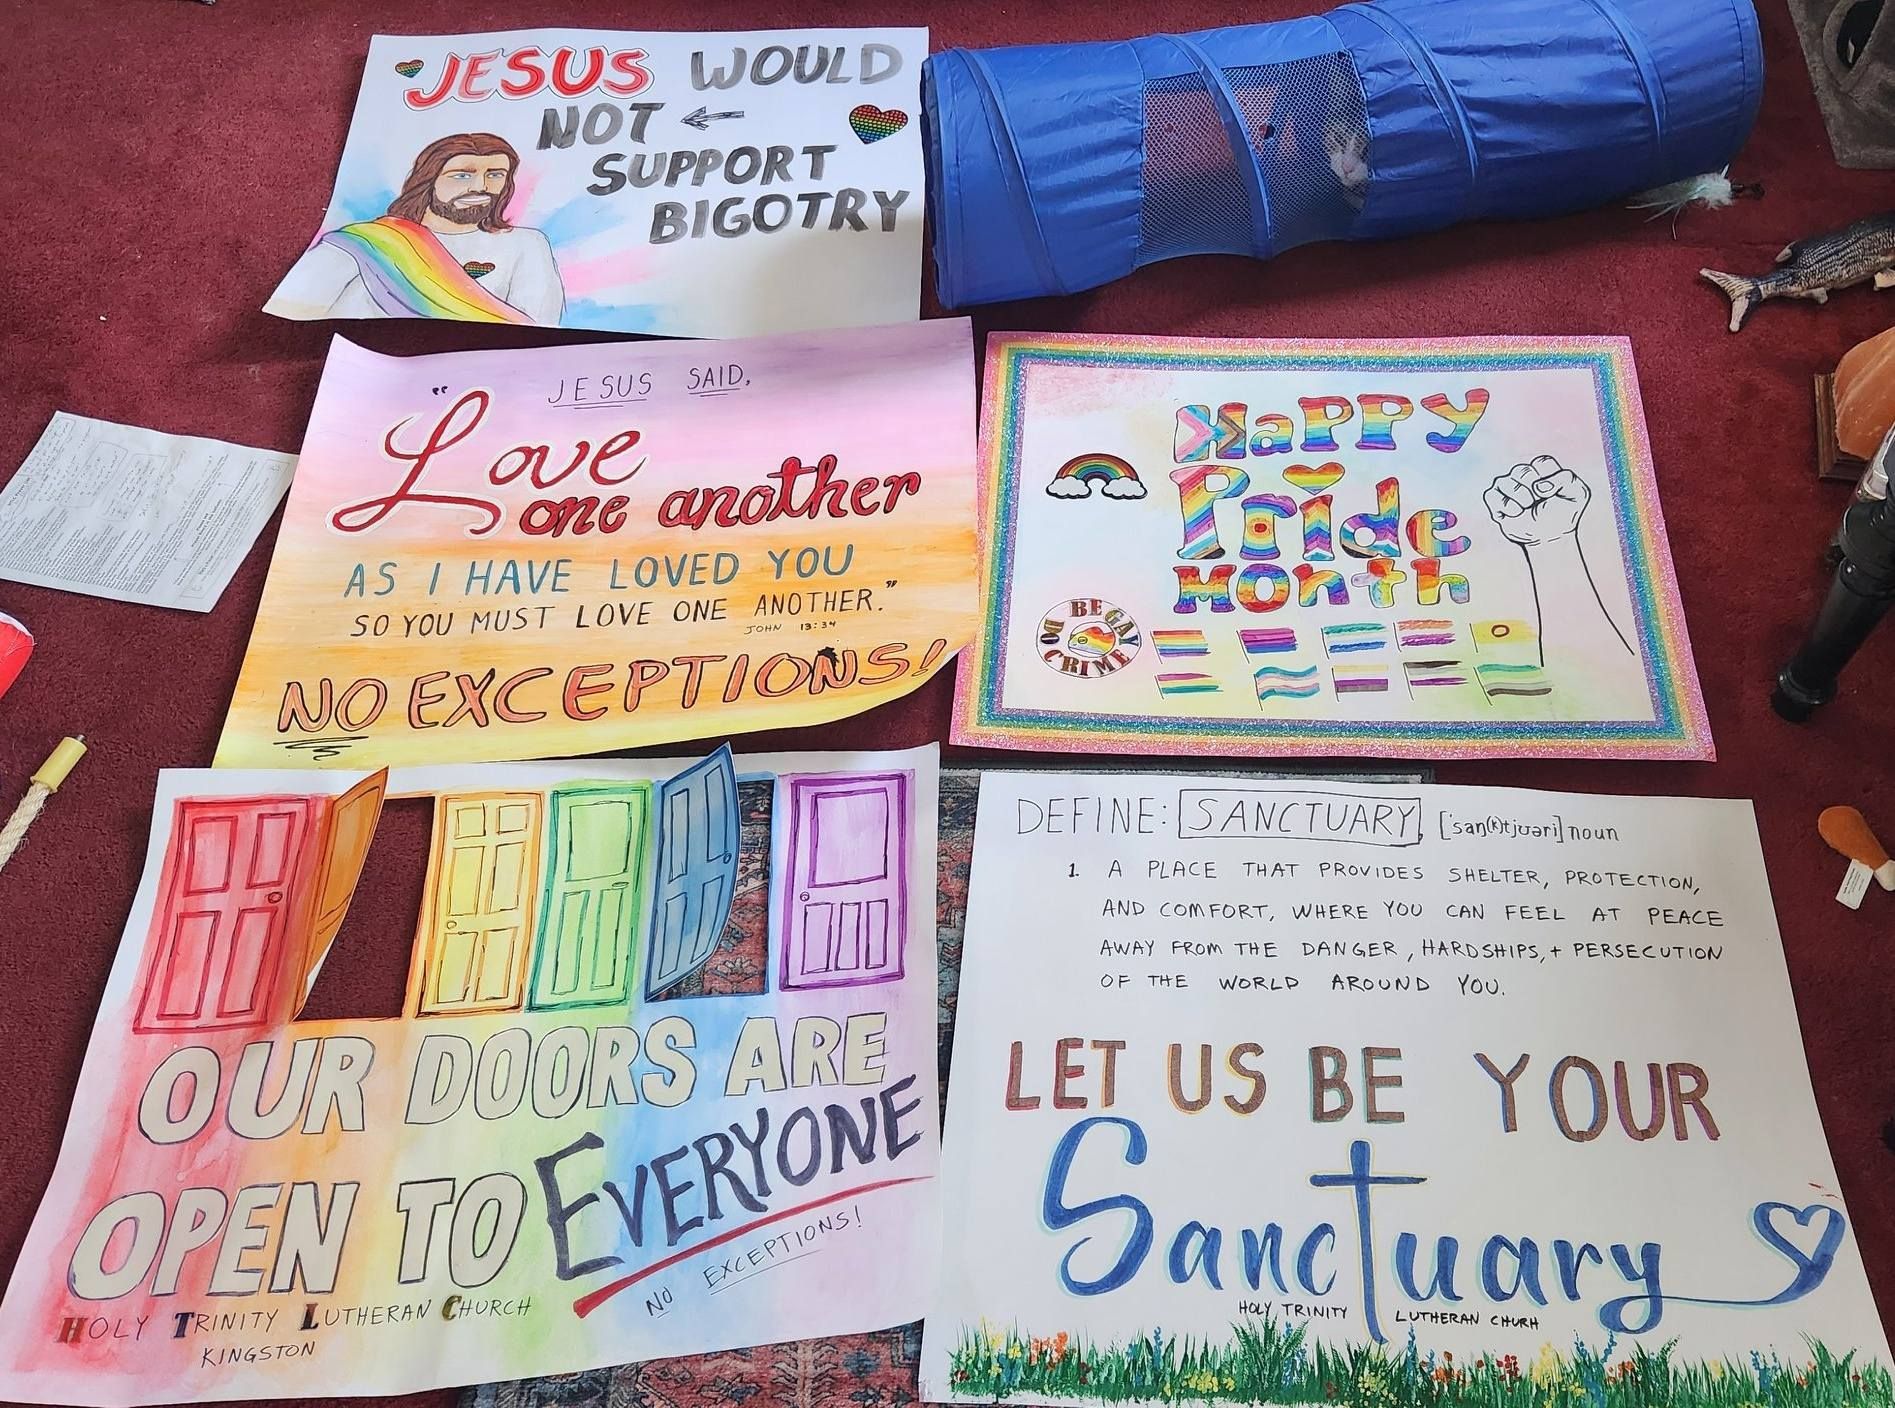 JESUS WOULD
NOT
SUPPORT
BIGOTRY
JESUS SAID,
"Love
one another
AS I HAVE LOVED YOU
SO YOU MUST LOVE ONE ANOTHER."
JOHN 13:34
NO EXCEPTIONS!
Happy
Pride
Month
BE GAY
DO CRIME
OUR DOORS ARE
OPEN TO EVERYONE
NO EXCEPTIONS!
HOLY TRINITY LUTHERAN CHURCH
KINGSTON
DEFINE: SANCTUARY, ['san(k)tjʊəri] noun
1. A PLACE THAT PROVIDES SHELTER, PROTECTION,
AND COMFORT, WHERE YOU CAN FEEL AT PEACE
AWAY FROM THE DANGER, HARDSHIPS, + PERSECUTION
OF THE WORLD AROUND YOU.
LET US BE YOUR
Sanctuary
HOLY TRINITY LUTHERAN CHURH